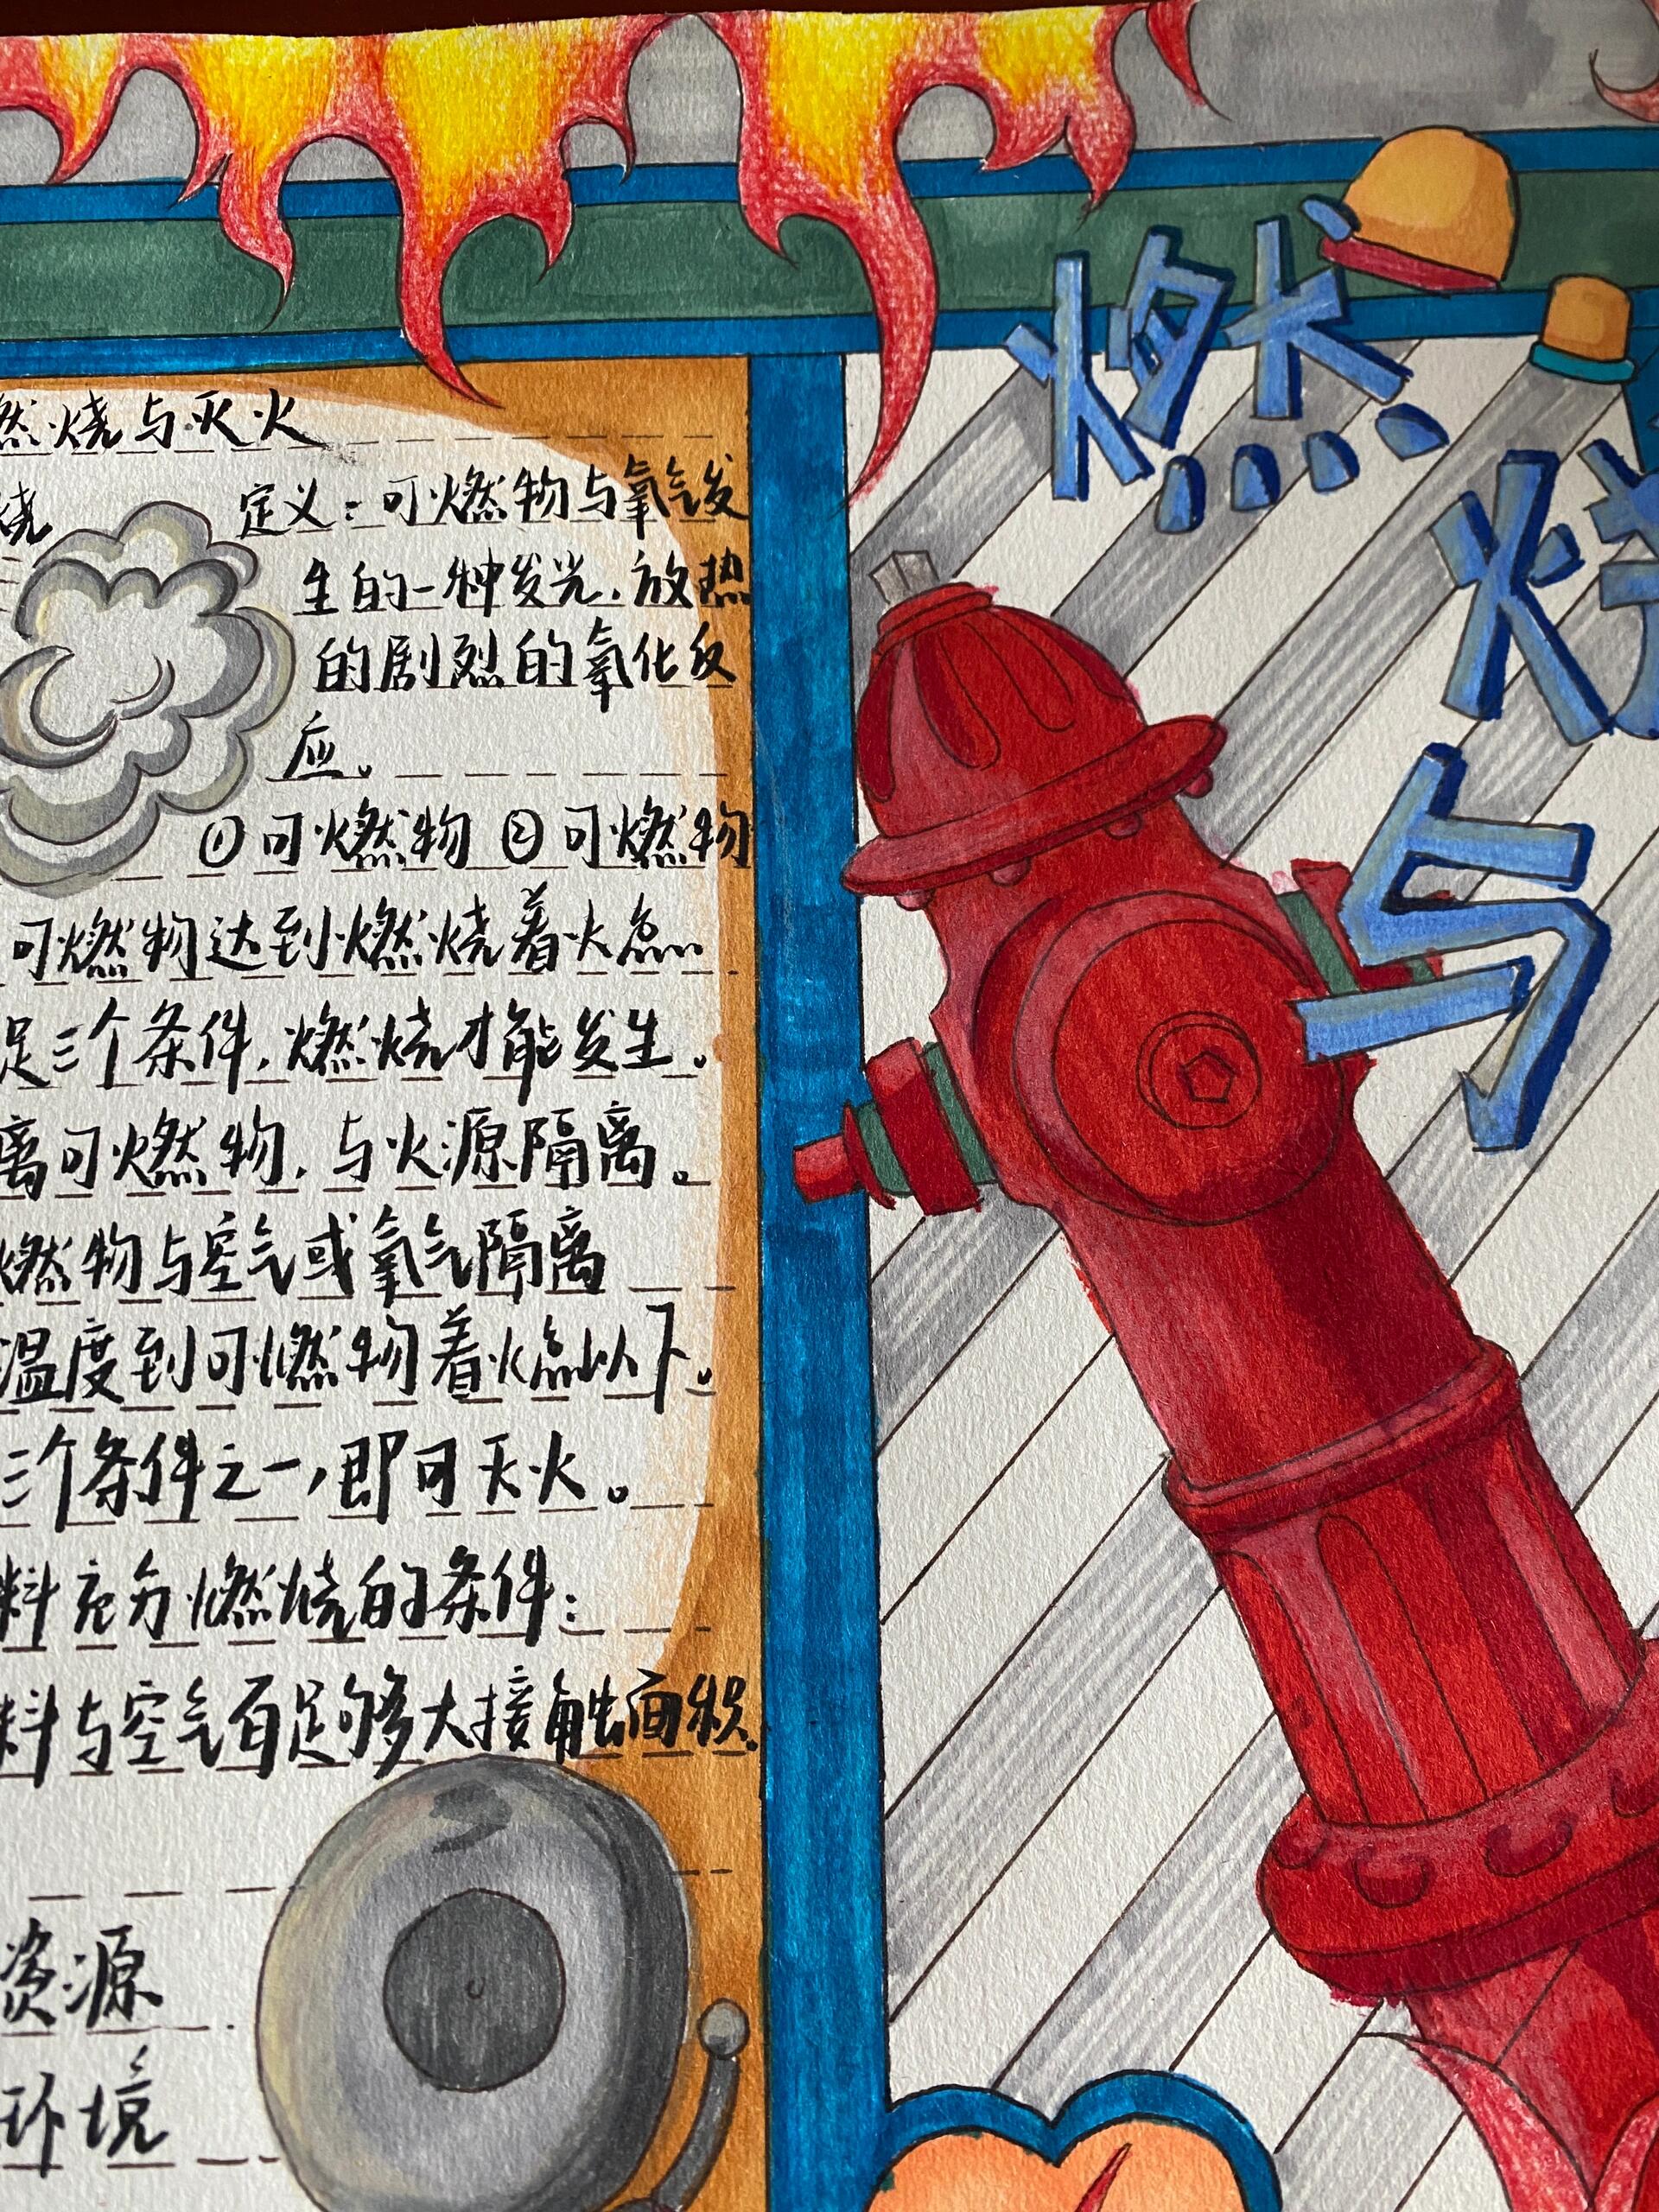 燃烧与灭火
烧
定义：可燃物与氧气发
生的一种发光、放热
的剧烈的氧化反
应。
①可燃物 ②可燃物
可燃物达到燃烧着火点
足三个条件，燃烧才能发生。
离可燃物，与火源隔离。
燃物与空气或氧气隔离
温度到可燃物着火点以下。
三个条件之一，即可灭火。
料充分燃烧的条件：
料与空气有足够大接触面积.
资源
环境
燃
烧
与